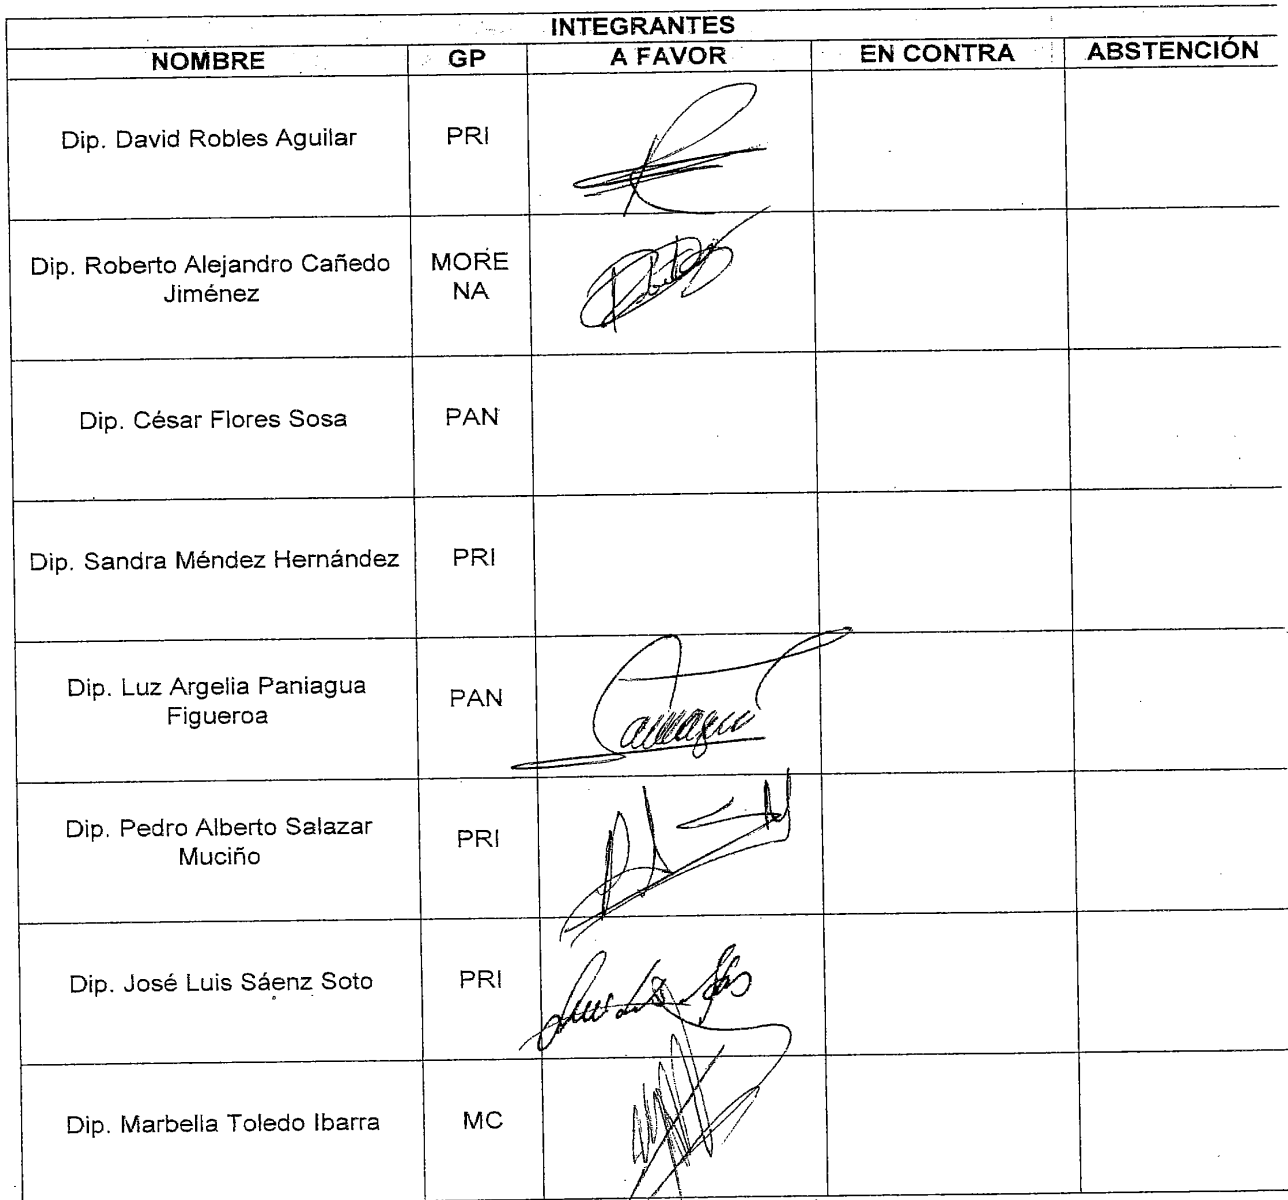 INTEGRANTES
NOMBRE GP A FAVOR EN CONTRA ABSTENCIÓN
Dip. David Robles Aguilar PRI
Dip. Roberto Alejandro Cañedo
Jiménez
MORE
NA
Dip. César Flores Sosa PAN
Dip. Sandra Méndez Hernández PRI
Dip. Luz Argelia Paniagua
Figueroa
PAN
Dip. Pedro Alberto Salazar
Muciño
PRI
Dip. José Luis Sáenz Soto PRI
Dip. Marbella Toledo Ibarra MC